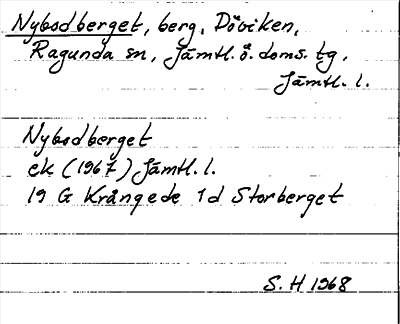 Nybodberget, berg, Döviken,
Ragunda sn, Jämtl. ö. doms. tg,
Jämtl. l.
Nybodberget
ek (1967) Jämtl. l.
19 G Krångede 1d Storberget
S. H 1968